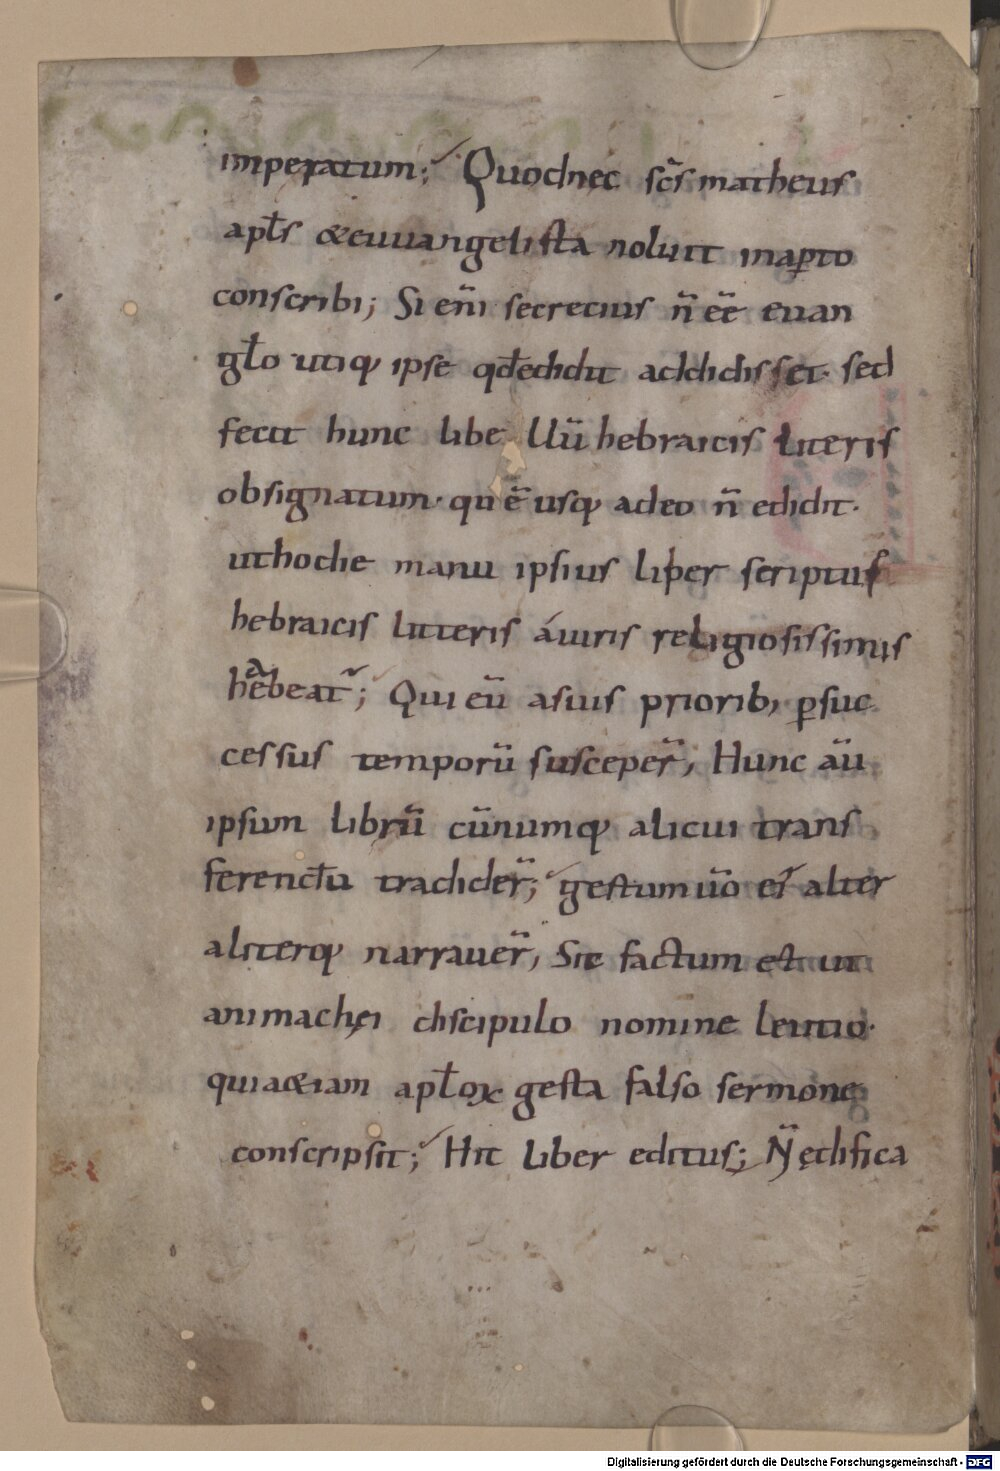 imperatum; Quodnec sc̄s matheus
apl̄s &euuangelista noluit inap̲to
conscribi; Si en̄i secretius n̄ eē euan
gl̄o utiq; ipse qd̄edidit addidisset· sed
fecit hunc libe llū hebraicis literis
obsignatum· quē usq; adeo n̄ edidit·
uthodie manu ipsius liber scriptus
hebraicis litteris áuiris religiosissimis
habeat᷑; Qui eū asuis priorib; p̲suc
cessus temporū susceper̄; Hunc aū
ipsum librū cūnumq; alicui trans
ferendū tradider̄; gestum ūo ei᷑ alter
aliterq; narrauer̄; Sic factum est ut
amachęi discipulo nomine leutio·
quia&iam apl̄oꝝ gesta falso sermone
conscripsit; Hic liber editus; N̄ ędifica
Digitalisierung gefördert durch die Deutsche Forschungsgemeinschaft - DFG